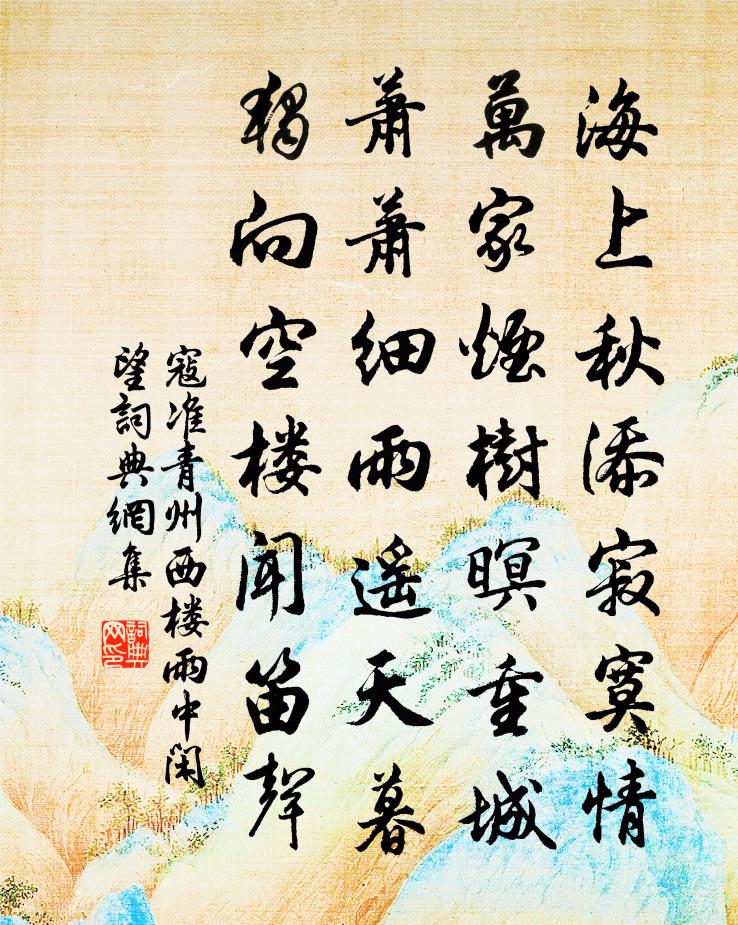 海上秋添寂寞情
萬家煙樹暝重城
蕭蕭細雨遥天暮
獨向空楼闻笛聲
寇准青州西楼雨中闲
望詞典網集
詞典
网印